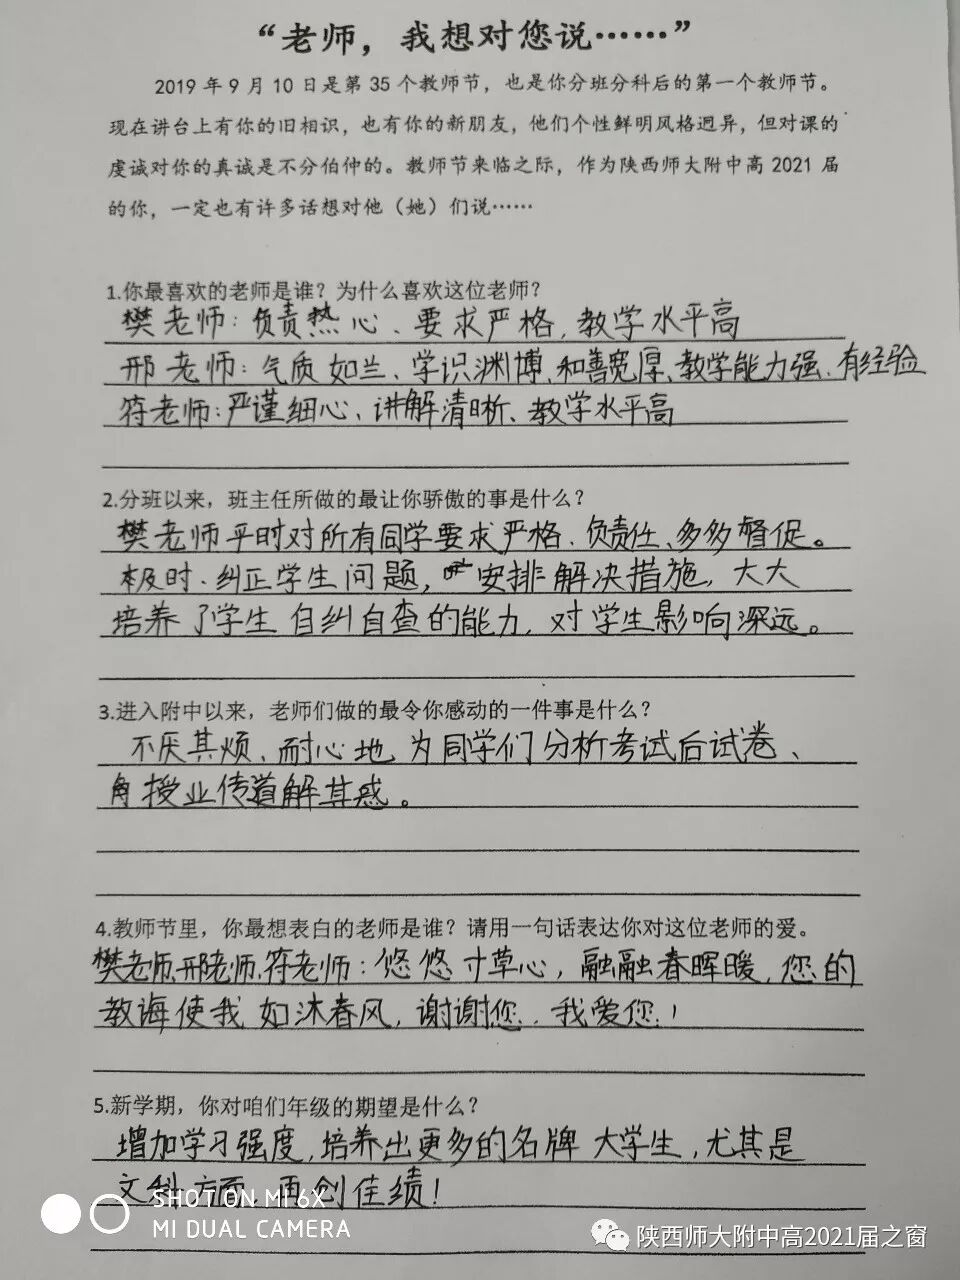 “老师，我想对您说……”
2019年9月10日是第35个教师节，也是你分班分科后的第一个教师节。
现在讲台上有你的旧相识，也有你的新朋友，他们个性鲜明风格迥异，但对课的
虔诚对你的真诚是不分伯仲的。教师节来临之际，作为陕西师大附中高2021届
的你，一定也有许多话想对他（她）们说……
1.你最喜欢的老师是谁？为什么喜欢这位老师？
樊老师：负责热心、要求严格，教学水平高
邢老师：气质如兰、学识渊博、和善宽厚、教学能力强、有经验
符老师：严谨细心、讲解清晰、教学水平高
2.分班以来，班主任所做的最让你骄傲的事是什么？
樊老师平时对所有同学要求严格、负责任、多多督促。
及时、纠正学生问题，安排解决措施，大大
培养了学生自纠自查的能力，对学生影响深远。
3.进入附中以来，老师们做的最令你感动的一件事是什么？
不厌其烦、耐心地为同学们分析考试后试卷、
授业传道解其惑。
4.教师节里，你最想表白的老师是谁？请用一句话表达你对这位老师的爱。
樊老师、邢老师、符老师：悠悠寸草心，融融春晖暖，您的
教诲使我如沐春风，谢谢您，我爱您！
5.新学期，你对咱们年级的期望是什么？
增加学习强度，培养出更多的名牌大学生，尤其是
文科方面，再创佳绩！
SHOT ON MI 6X
MI DUAL CAMERA
陕西师大附中高2021届之窗